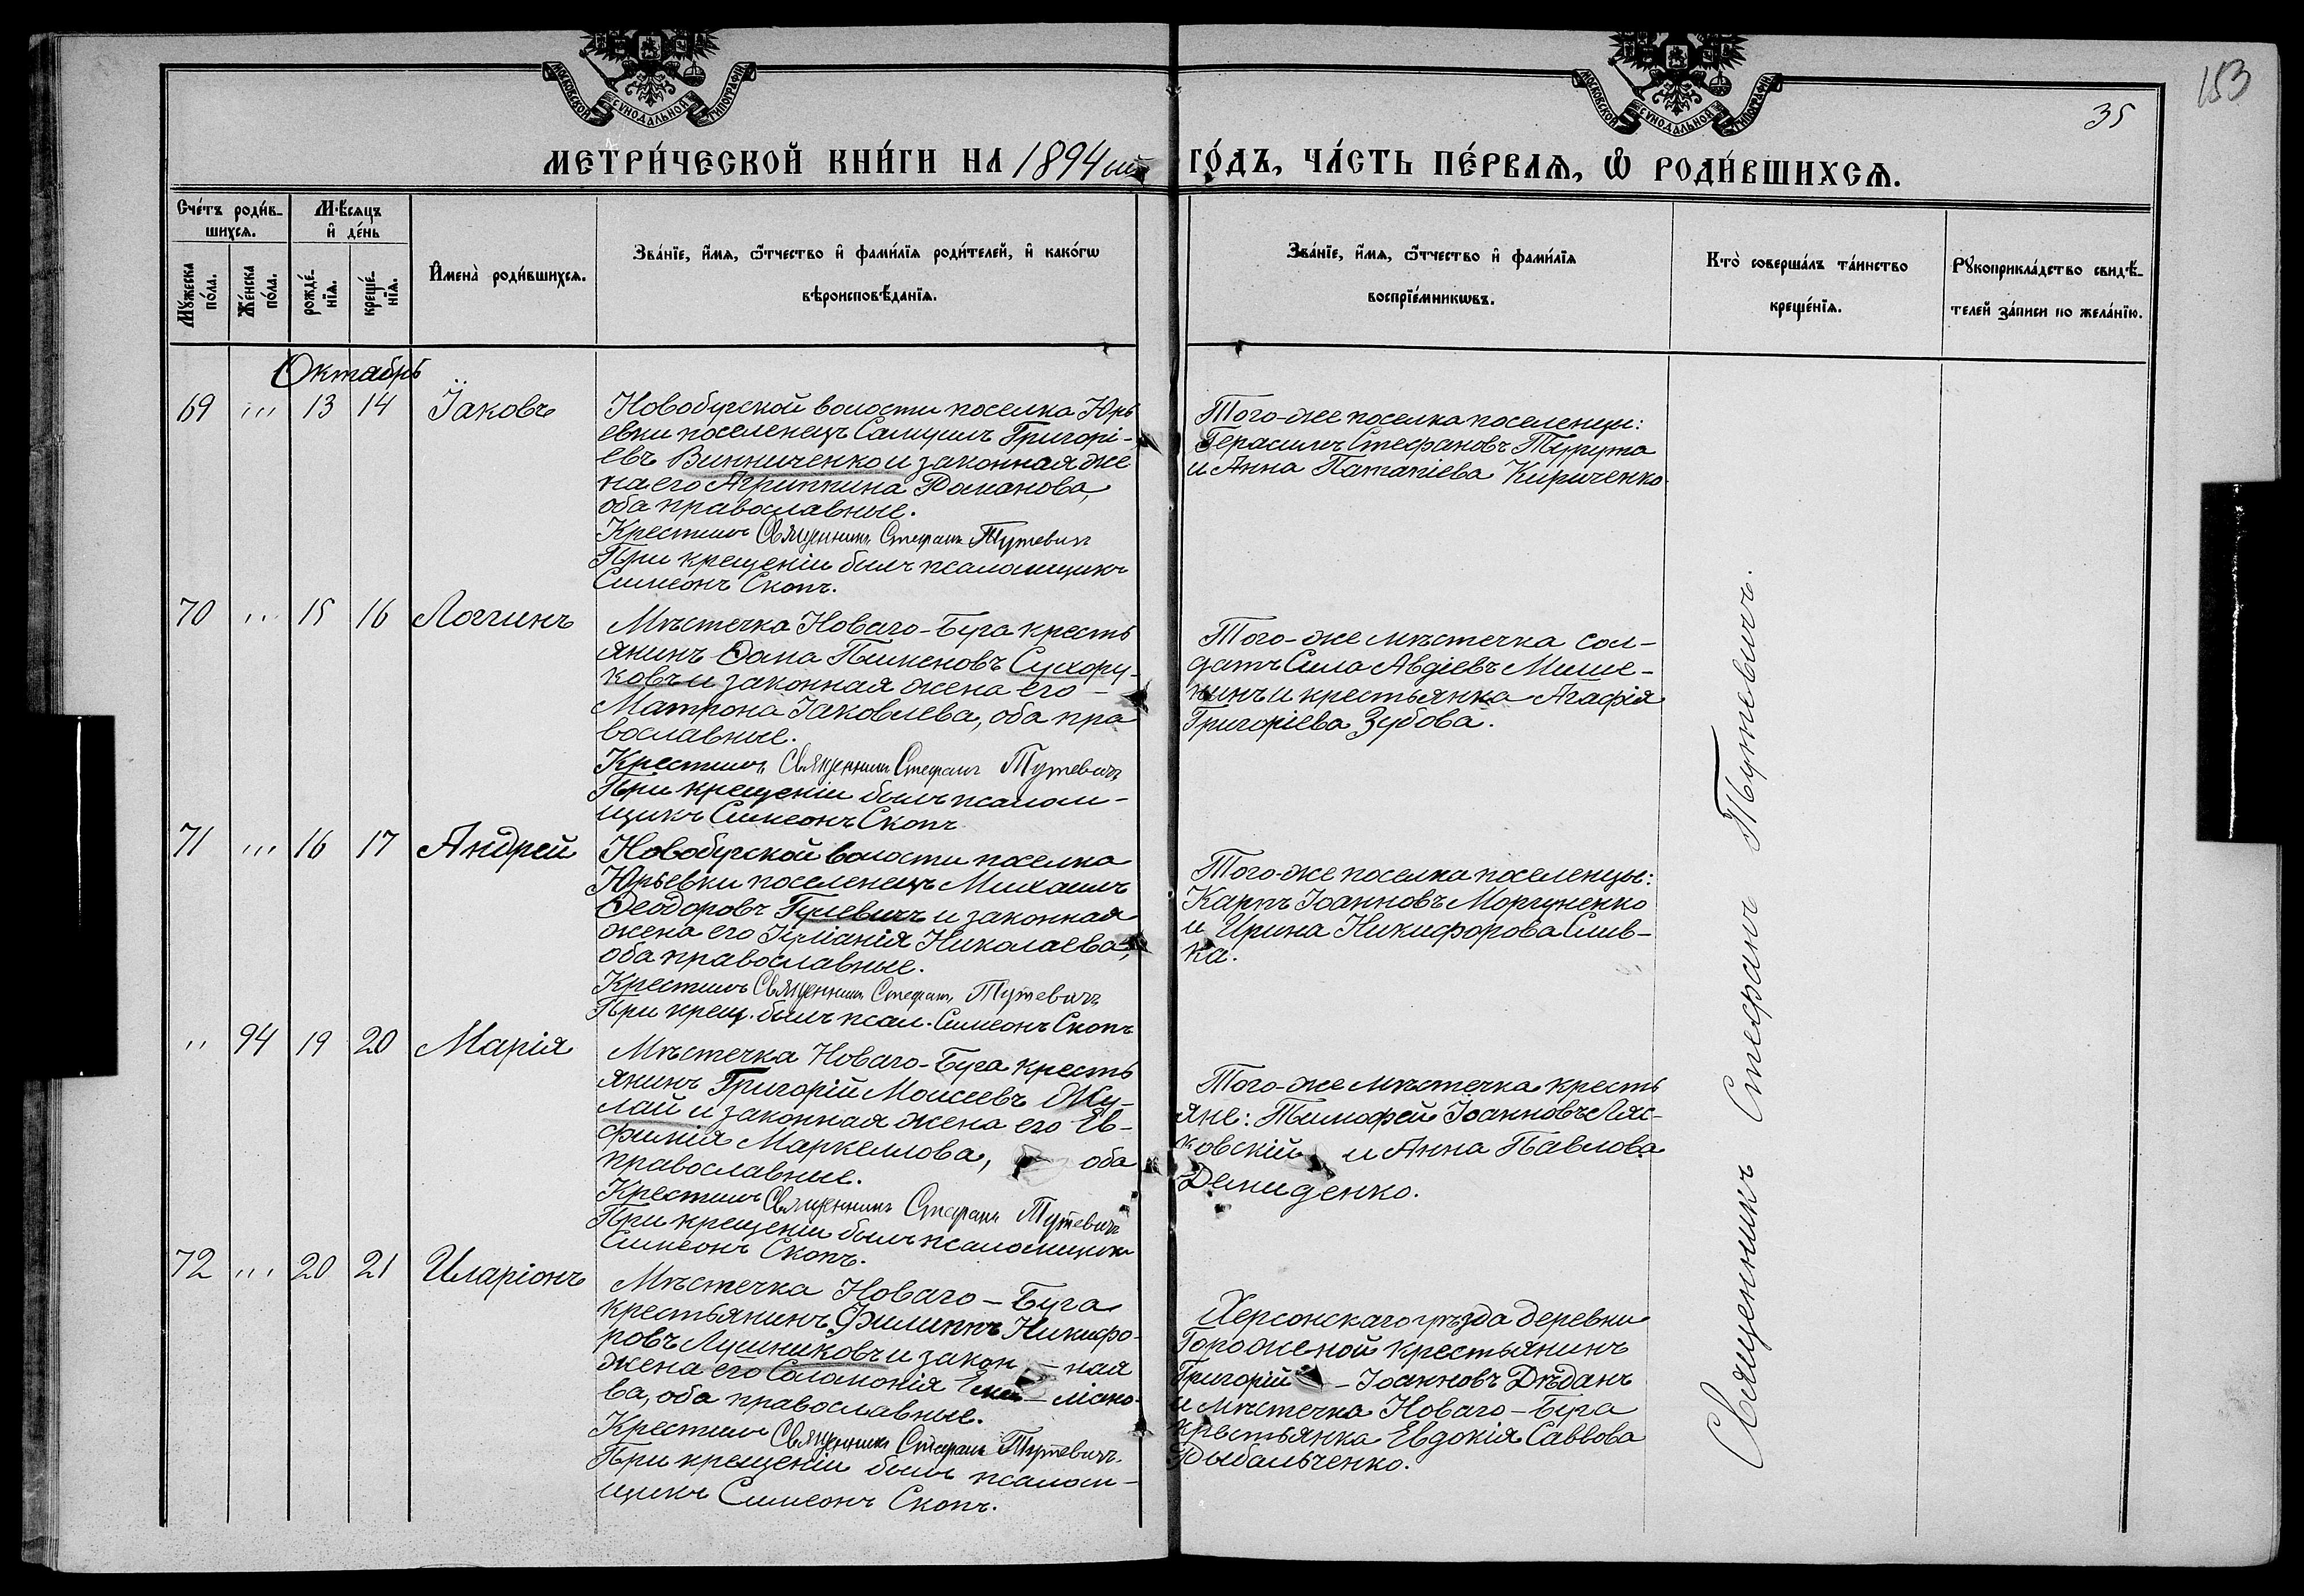 МОСКОВСКОЙ СѴНОДАЛЬНОЙ ТИПОГРАФІИ
МОСКОВСКОЙ СѴНОДАЛЬНОЙ ТИПОГРАФІИ
153
35
МЕТРИ́ЧЕСКОЙ КНИ́ГИ НА 1894 ый ГО́ДЪ, ЧА́СТЬ ПЕ́РВАѦ, Ѡ҆ РОДИ́ВШИХСѦ.
Сче́тъ роди́в-
шихсѧ.
Мꙋ́жеска
по́ла.
Же́нска
по́ла.
Мѣ́сѧцъ
и҆ де́нь
рожде́-
нїѧ.
креще́-
нїѧ.
И҆мена̀ роди́вшихсѧ.
Зва́нїе, и҆́мѧ, ѻ҆́тчество и҆ фами́лїѧ роди́телей, и҆ како́гѡ
вѣроисповѣ́данїѧ.
Зва́нїе, и҆́мѧ, ѻ҆́тчество и҆ фами́лїѧ
воспрїе́мникѡвъ.
Кто̀ соверша́лъ та́инство
креще́нїѧ.
Рꙋкоприкла́дство свидѣ́-
телей за́писи по жела́нїю.
Октябрь
69 ,,, 13 14 Їаковъ
Новобугской волости поселка Юрь
евки поселенецъ Самуилъ Григорі-
евъ Винниченко и законная же
на его Агриппина Романова,
оба православные.
Крестилъ Священникъ Стефанъ Тутевичъ
При крещеніи былъ псаломщикъ
Симеонъ Скопъ.
Того-же поселка поселенцы:
Герасимъ Стефановъ Турута
и Анна Патапіева Кириченко
70 ,,, 15 16 Логгинъ
Мѣстечка Новаго-Буга кресть
янинъ Ѳома Пименовъ Сухору-
ковъ и законная жена его
Матрона Іаковлева, оба пра
вославные.
Крестилъ Священникъ Стефанъ Тутевичъ
При крещеніи былъ псалом-
щикъ Симеонъ Скопъ
Того-же мѣстечка сол-
датъ Сила Авдіевъ Мише-
нинъ и крестьянка Агафія
Григоріева Зубова.
71 ,,, 16 17 Андрей
Новобугской волости поселка
Юрьевки поселенецъ Михаилъ
Ѳеодоровъ Гулевичъ и законная
жена его Іуліанія Николаева,
оба православные.
Крестилъ Священникъ Стефанъ Тутевичъ
При крещ. былъ псал. Симеонъ Скопъ
Того-же поселка поселенцы:
Карпъ Іоанновъ Моргуненко
и Ирина Никифорова Слив-
ка.
,, 94 19 20 Марія
Мѣстечка Новаго-Буга кресть
янинъ Григорій Моисеевъ Жу-
лай и законная жена его Ев-
фимія Маркеллова, оба
православные.
Крестилъ Священникъ Стефанъ Тутевичъ
При крещеніи былъ псаломщикъ
Симеонъ Скопъ.
Того-же мѣстечка кресть
яне: Тимофей Іоанновъ Ляс-
ковскій и Анна Павлова
Демиденко.
72 ,,, 20 21 Иларіонъ
Мѣстечка Новаго-Буга
крестьянинъ Филиппъ Никифо-
ровъ Лушниковъ и закон-ная
жена его Саломонія Еми-ліано-
ва, оба православные.
Крестилъ Священникъ Стефанъ Тутевичъ.
При крещеніи былъ псалом-
щикъ Симеонъ Скопъ.
Херсонскаго уѣзда деревни
Гороженой крестьянинъ
Григорій - Іоанновъ Дѣданъ
и мѣстечка Новаго-Буга
крестьянка Евдокія Саввова
Рыбальченко.
Священникъ Стефанъ Тутевичъ.